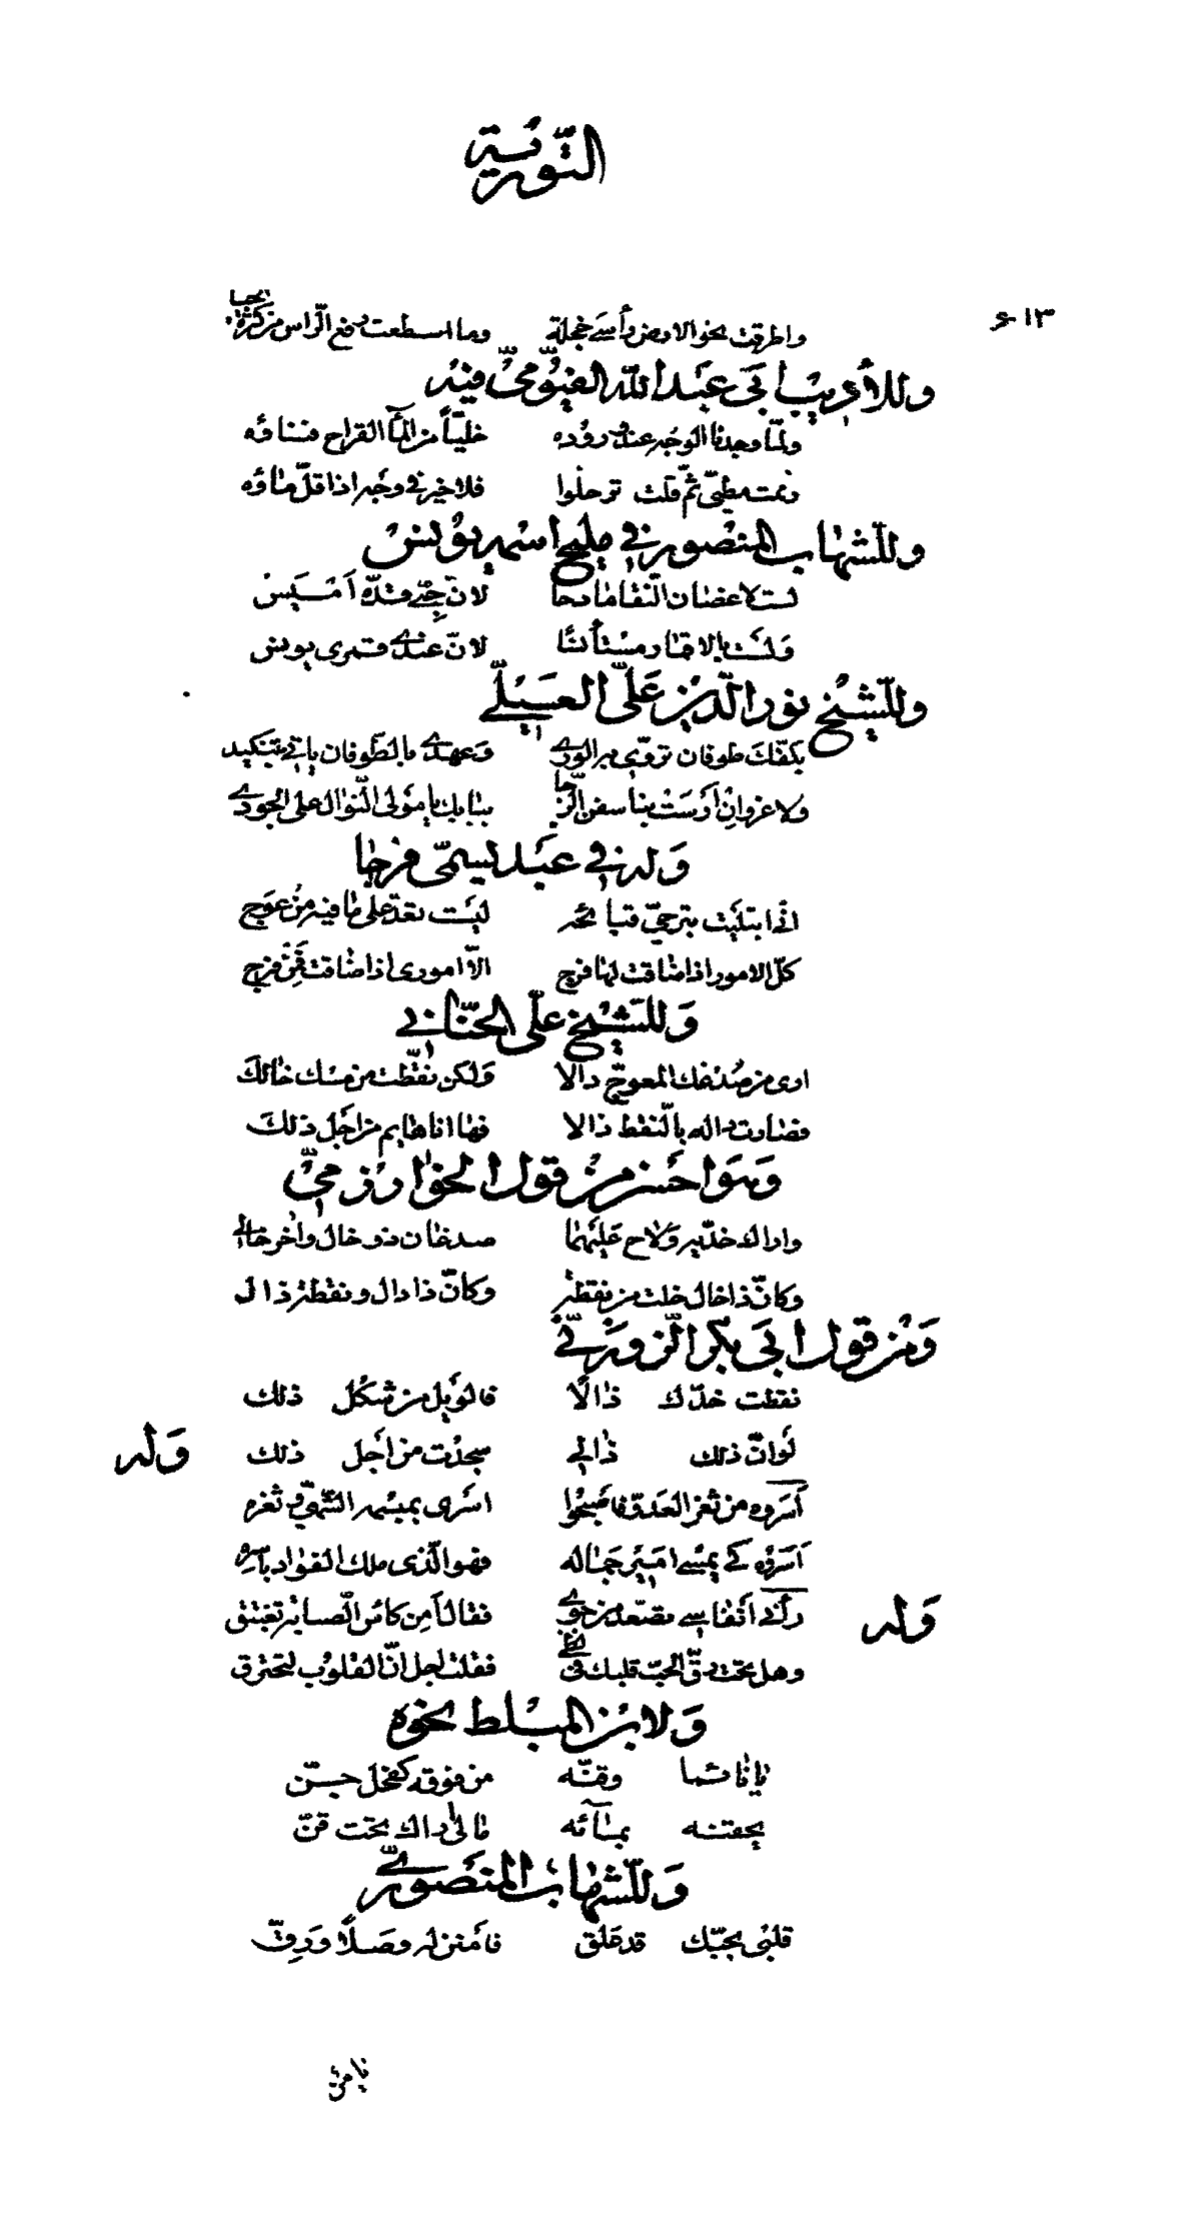 التورية
واطرقت نحو الارض رأسي خجلة وما اسطعت رفع الرّاس من كثرة الحيا
وللأديب ابي عبد الله الفيّومي فيه
ولمّا وجدنا الوجه عند وروده خليّاً من المآ القراح فناؤه
فلا خير في وجه اذا قلّ ماؤه
وللشّهاب المنصوري في مليح اسمه يونس
لست لاغصان النّقا مادحا لانّ
ولست بالاقمار مستأنسًا لانّ عندي قمري يونس
وللشّيخ نور الدّين علي العسيلي
بكفّك طوفان الورى وعهدي بالطّوفان ياتي بتنكيد
ولا غرو ان أرست بنا سفن الرّجا ببابك يا مولى النّوال على الجودي
وله في عبد يسمّى فرجا
اني ابتليت ليت يقدّ على ما فيه من عوج
كلّ الامور اذا ضاقت لها فرج الاّ اموري اذا ضاقت فمن فرج
وللشيخ علي الحنّاني
ارى من صدغك المعوجّ دالا ولكن نقّطت من مسك خالك
فصارت داله بالنّقط ذالا فها انا هايم من اجل ذلك
وهو احسن من قول الخوارزمي
ولاح عليهما صدغان ذو خال واخر خالي
وكانّ ذا خال خلت من نقطة وكانّ ذا دال ونقطة ذال
ومن قول ابي بكر الزوزني
نقطت خدّك ذالًا فالويل من شكل ذلك
لو انّ ذلك ذا لي سجدت من اجل ذلك
وله
أسروه من ثغر العدوّ فاصبحوا اسرى بمبسمه الشّهيّ وثغره
أسروه كي يمسي اميرَ جماله فهو الّذي ملك الفؤاد باسره
وله
رأى أنفاسي تصّعد من جوى فقال أمن كاس الصبابة تغتبق
وهل تحت رقّ الحبّ قلبك قلت فقلت اجل انّ القلوب لتحترق
ولابن المبلط نحوه
وقتّه من فوقه كفحل حسن
بجفتنه بمآئه ما لي اراك تحت قنّ
وللشّهاب المنصوري
قلبي بحبّك قد علق فامنن له وصلًا ورقّ